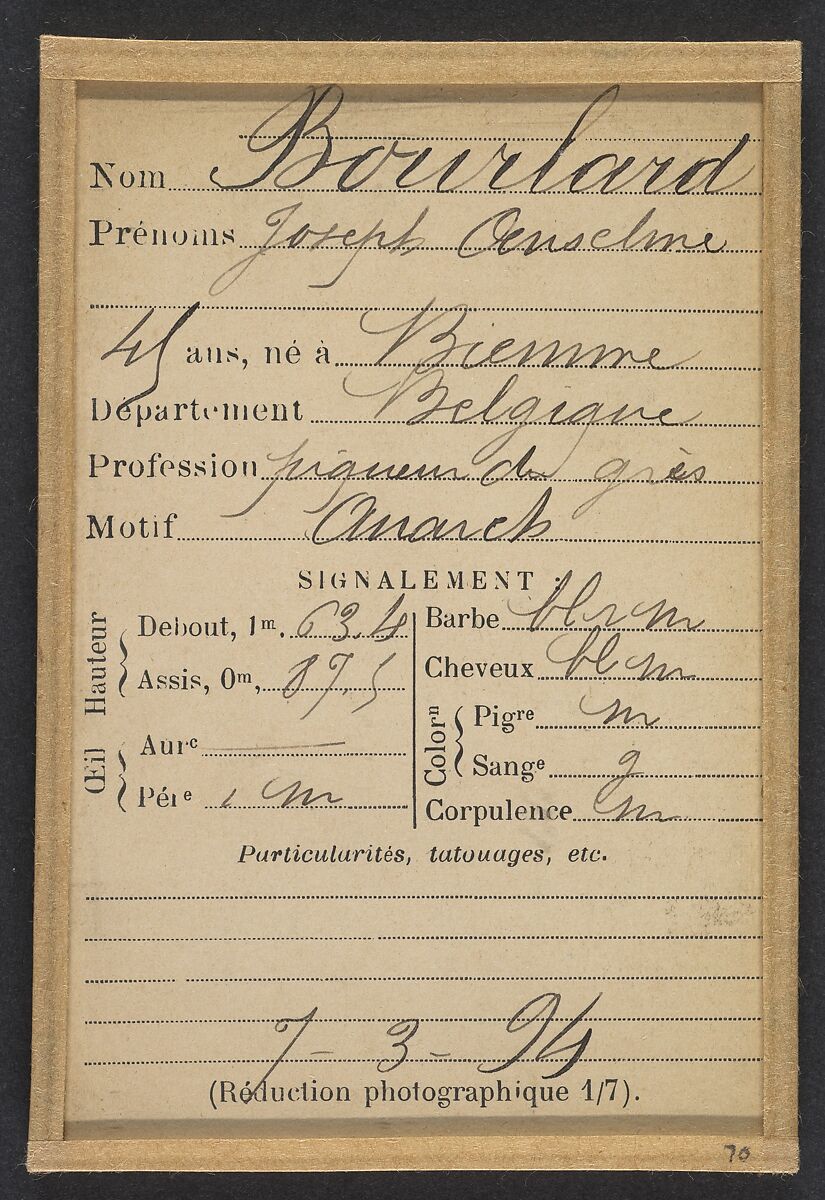 Nom Bourlard
Prénoms Joseph Anselme
45 ans, né à Biemme
Département Belgique
Profession piqueur de grès
Motif Anarch
SIGNALEMENT :
Hauteur
Debout, 1m. 63.4
Assis, 0m, 87.5
Œil
Aure
Pére i m
Barbe bl r m
Cheveux bl m
Colorn
Pigre m
Sange g
Corpulence m
Particularités, tatouages, etc.
7 - 3 - 94
(Réduction photographique 1/7).
70